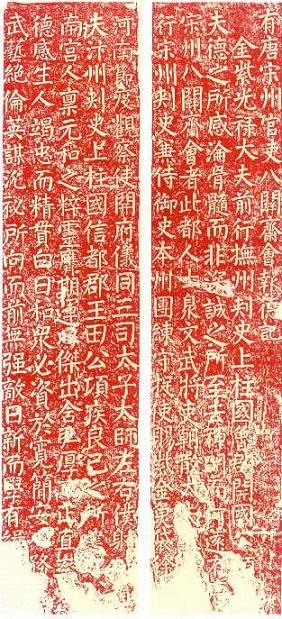 有唐宋州官吏八關齋會報德記
金紫光祿大夫前行撫州刺史上柱國魯郡開國
夫德之所感淪骨髓而非深誠之所至去神明而何遠不
宋州八關齋會者此都人士衆文武將吏朝散
行宋州刺史兼侍御史本州團練守捉使賜紫金魚袋徐
河南節度觀察使開府儀同三司太子太師左右僕射
大夫汴州刺史上柱國信都郡王田公頃疾良已之所
南宮人禀元和之粹靈膺期運之傑出含弘厚
德感生人竭忠而精貫白日和衆必資於寬簡
武藝絕倫英謀沉祕所向而前無强敵日新而學有